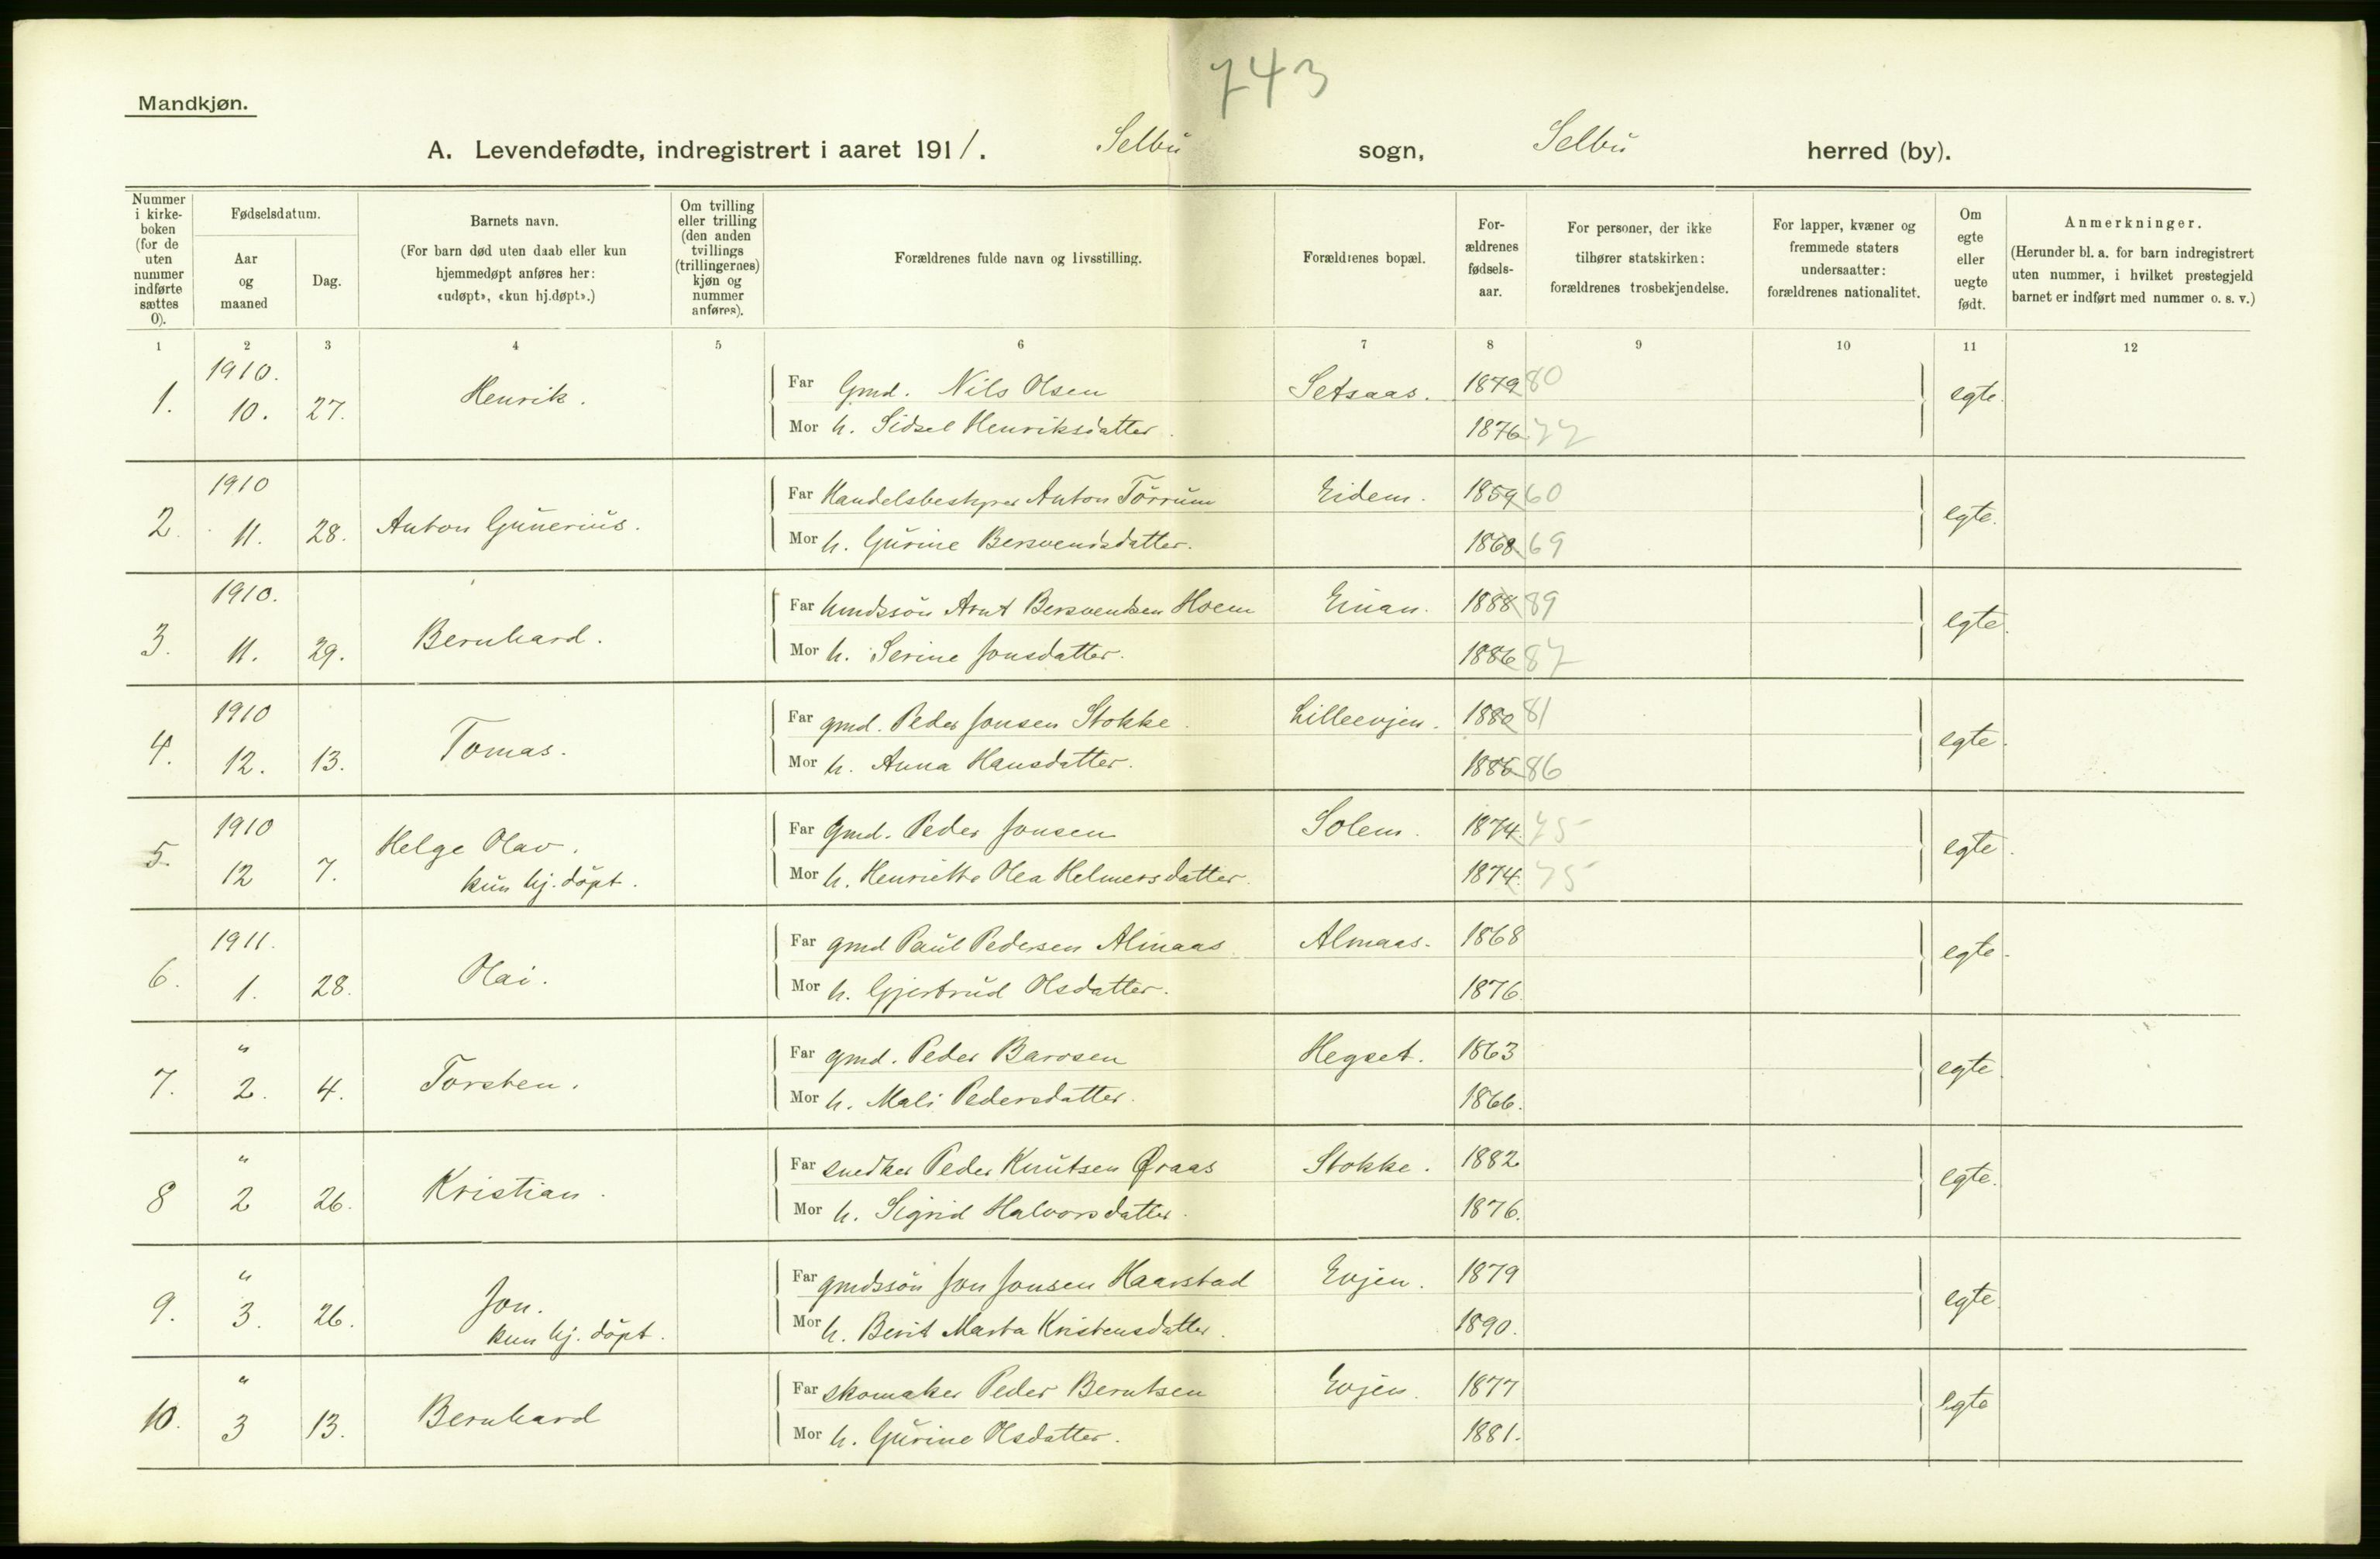 743
Mandkjøn.
A. Levendefødte, indregistrert i aaret 1911. Selbu sogn, Selbu herred (by).
Nummer i kirke-boken (for de uten nummer indførte sættes 0).
Fødselsdatum.
Aar og maaned
Dag.
Barnets navn.
(For barn død uten daab eller kun hjemmedøpt anføres her: «udøpt», «kun hj.døpt».)
Om tvilling eller trilling (den anden tvillings (trillingernes) kjøn og nummer anføres).
Forældrenes fulde navn og livsstilling.
Forældrenes bopæl.
For-ældrenes fødsels-aar.
For personer, der ikke tilhører statskirken: forældrenes trosbekjendelse.
For lapper, kvæner og fremmede staters undersaatter: forældrenes nationalitet.
Om egte eller uegte født.
Anmerkninger.
(Herunder bl. a. for barn indregistrert uten nummer, i hvilket prestegjeld barnet er indført med nummer o. s. v.)
1 2 3 4 5 6 7 8 9 10 11 12
1. 1910. 10. 27. Henrik. Far Gmd. Nils Olsen Setsaas. 1879 80 egte.
Mor h. Sidsel Henriksdatter. 1876 77
2. 1910 11. 28. Anton Gunerius. Far Handelsbestyrer Anton Törrum Eidem. 1859 60 egte.
Mor h. Gurine Bersvendsdatter. 1868 69
3. 1910. 11. 29. Bernhard. Far Arnt Bersvendsen Hoem 1888 89 egte.
Mor h. Serine Jonsdatter. 1886 87
4. 1910 12. 13. Tomas. Far gmd. Peder Jonsen Stokke. Lilleevjen. 1880 81 egte.
Mor h. Anna Hansdatter. 1885 86
5. 1910 12 7. Helge Olav. Far Gmd. Peder Jonsen Solem. 1874 75 egte.
kun hj. döpt. Mor h. Henriette Olea Helmersdatter. 1874. 75
6. 1911. 1. 28. Olai. Far gmd Paul Pedersen Almaas. Almaas. 1868 egte.
Mor h. Gjertrud Olsdatter. 1876.
7. " 2. 4. Torsten. Far gmd. Peder Barosen Hegset. 1863 egte.
Mor h. Mali Pedersdatter. 1866.
8 " 2 26. Kristian. Far snedker Peder Knutsen Øraas Stokke. 1882 egte.
Mor h. Sigrid Halvorsdatter. 1876.
9. " 3. 26. Jon. Far gmdssön Jon Jonsen Haarstad Evjen. 1879 egte.
kun hj. döpt. Mor h. Berit Marta Kristensdatter. 1890.
10. " 3 13. Bernhard Far skomaker Peder Berntsen Evjen. 1877 egte
Mor h. Gurine Olsdatter. 1881.